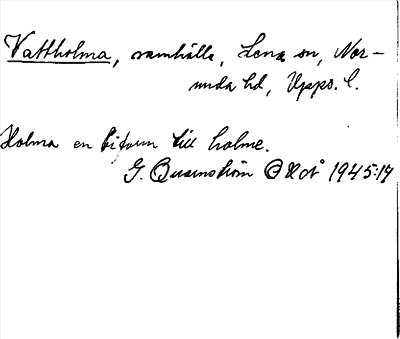 Vattholma, samhälle, Lena sn, Nor-
unda hd, Upps. l.
Holma en biform till holme.
G. Quarnström OHOÅ 1945:14